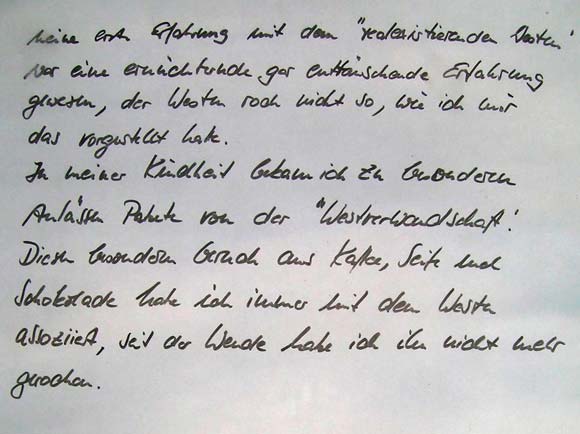 meine erste Erfahrung mit dem "realexistierenden Westen"
war eine ernüchternde, gar enttäuschende Erfahrung
gewesen, der Westen roch nicht so, wie ich mir
das vorgestellt habe.
In meiner Kindheit bekam ich zu besonderen
Anlässen Pakete von der "Westverwandschaft".
Diesen besonderen Geruch aus Kaffee, Seife und
Schokolade habe ich immer mit dem Westen
assoziiert, seit der Wende habe ich ihn nicht mehr
gerochen.